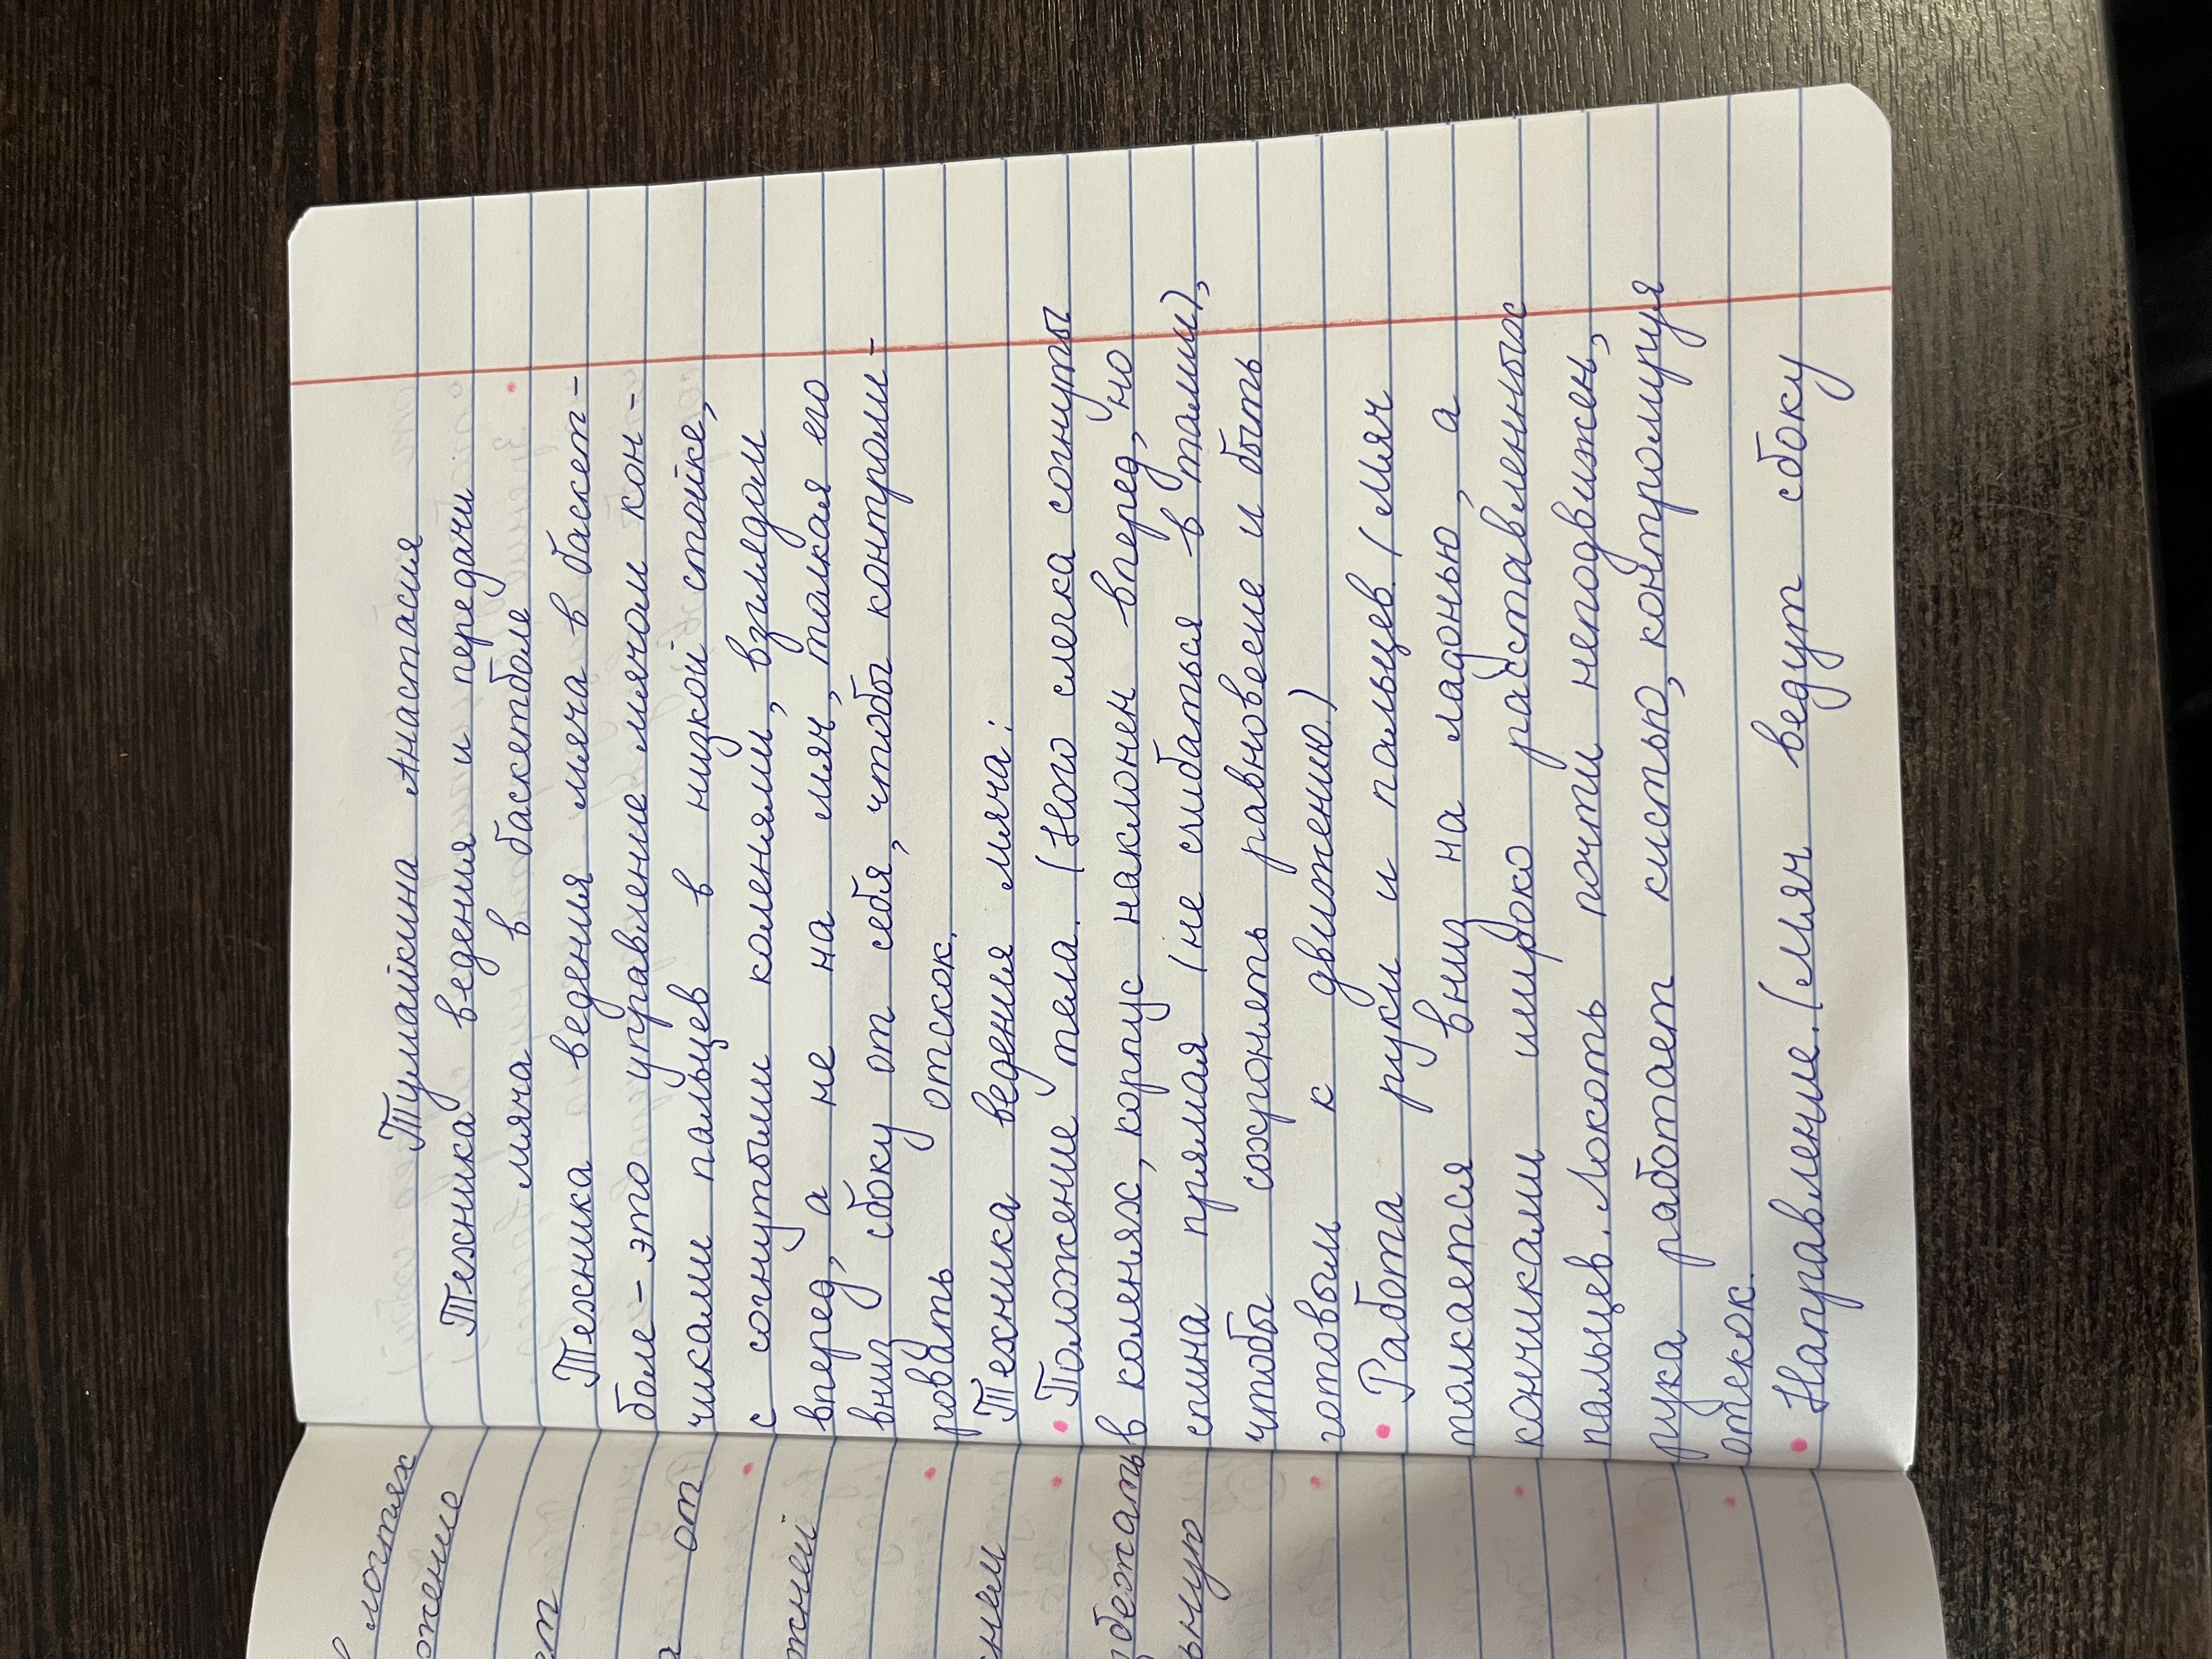 Тумайкина Анастасия
Техника ведения и передачи
мяча в баскетболе
Техника ведения мяча в баскет-
боле - это управление мячом кон-
чиками пальцев в низкой стойке,
с согнутыми коленями, взглядом
вперед, а не на мяч, толкая его
вниз сбоку от себя, чтобы контроли-
ровать отскок.
Техника ведения мяча:
• Положение тела. (Ноги слегка согнуты
в коленях, корпус наклонен вперед, но
спина прямая (не сгибаться в талии),
чтобы сохронять равновесие и быть
готовым к движению.)
• Работа руки и пальцев. (Мяч
толкается вниз на ладонью, а
кончиками широко расставленных
пальцев. Локоть почти неподвижен,
рука работает кистью, контролируя
отскок.
• Направление. (Мяч ведут сбоку
в локтях
от